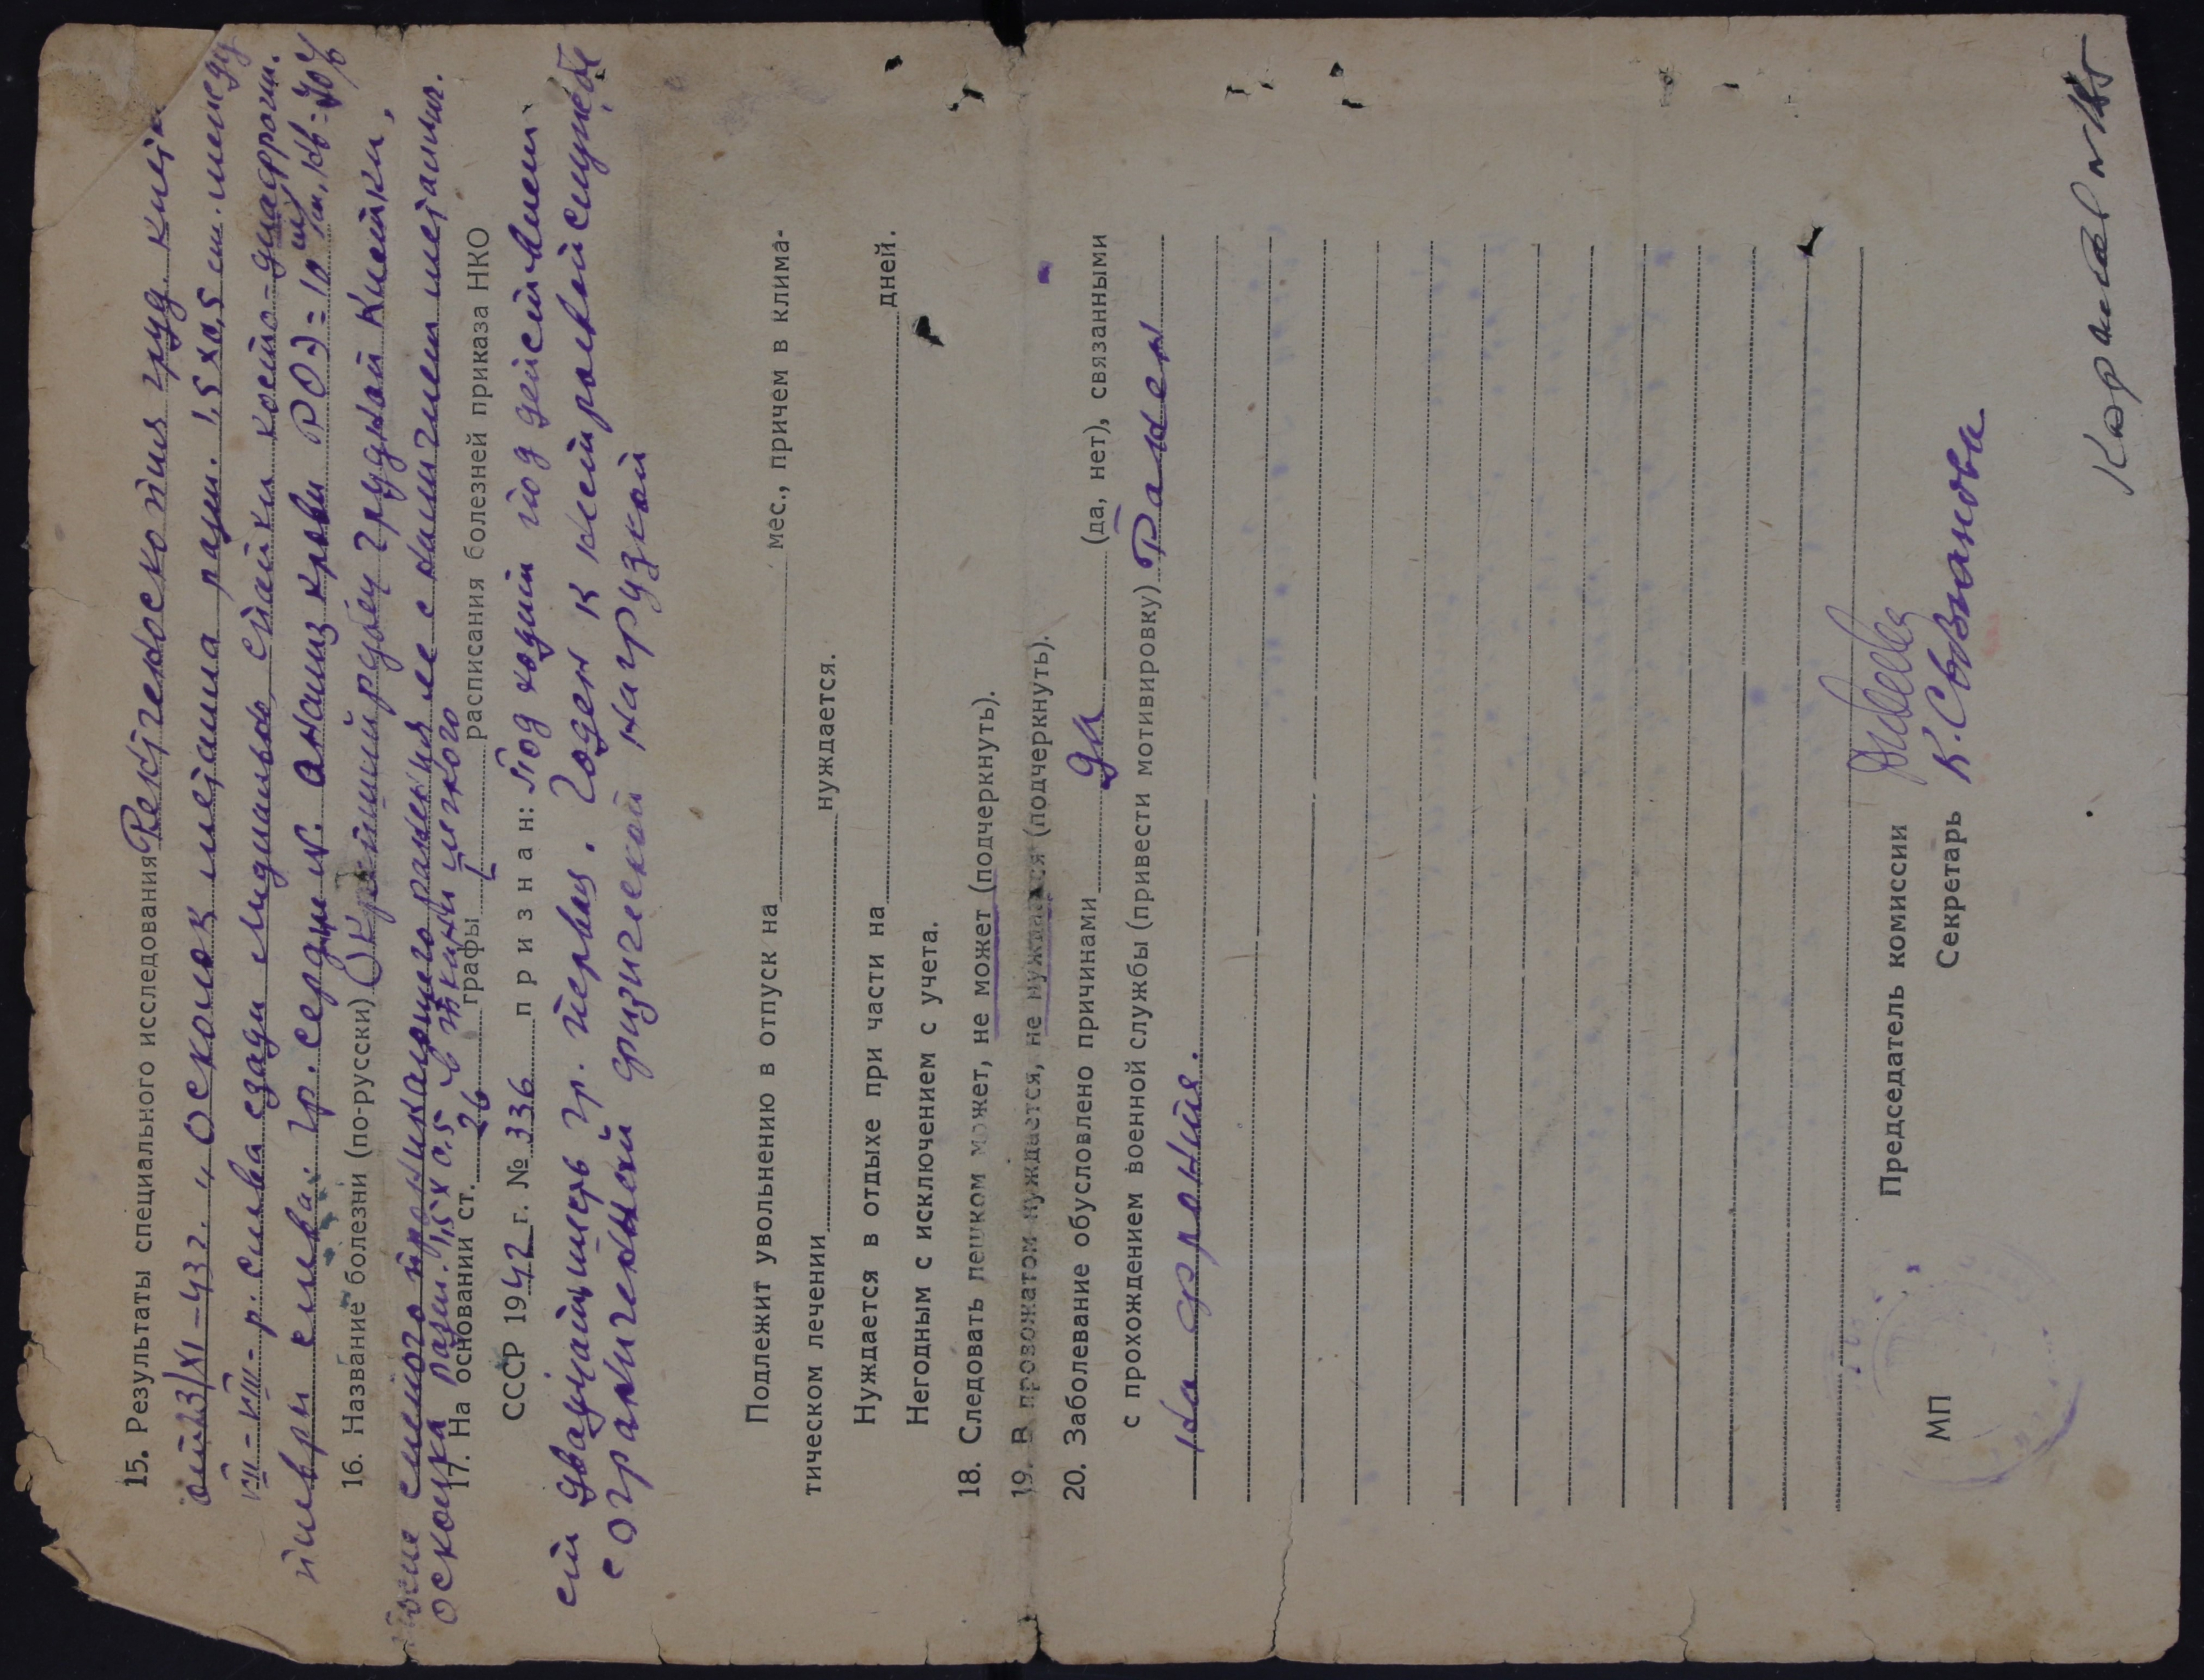 15. Результаты специального исследования Рентгеноскопия груд. клет
от 23/XI-43 г. „Осколок металла разм. 1,5х0,5 см. между
VII-VIII-р. слева сзади медиально, спайки костно-диафрагм.
плевры слева. Гр. сердца N. Анализ крови РОЭ=10 м/м, Hb-70%
16. Название болезни (по-русски) Окрепший рубец грудной клетки,
после слепого проникающего ранения ее с наличием металлич.
осколка разм. 1,5х0,5 в ткани легкого
17. На основании ст. 26 графы I расписания болезней приказа НКО
СССР 1942 г. № 336 признан: Подходит под действие
ст двадцать шесть гр. первая. Годен к нестроевой службе
с ограниченной физической нагрузкой
Подлежит увольнению в отпуск на мес., причем в клима-
тическом лечении нуждается.
Нуждается в отдыхе при части на дней.
Негодным с исключением с учета.
18. Следовать пешком может, не может (подчеркнуть).
19. В провожатом нуждается, не нуждается (подчеркнуть).
20. Заболевание обусловлено причинами да (да, нет), связанными
с прохождением военной службы (привести мотивировку) Ранен
на фронте.
Председатель комиссии
Секретарь К. Свозианова
МП